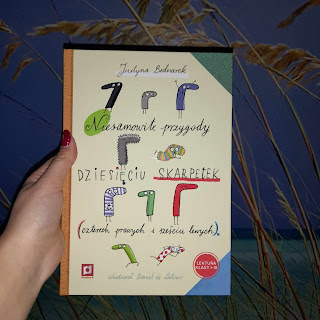 Justyna Bednarek
Niesamowite przygody
DZIESIĘCIU SKARPETEK
(czterech prawych i sześciu lewych)
LEKTURA
KLASY I-III
ilustrował Daniel de Latour